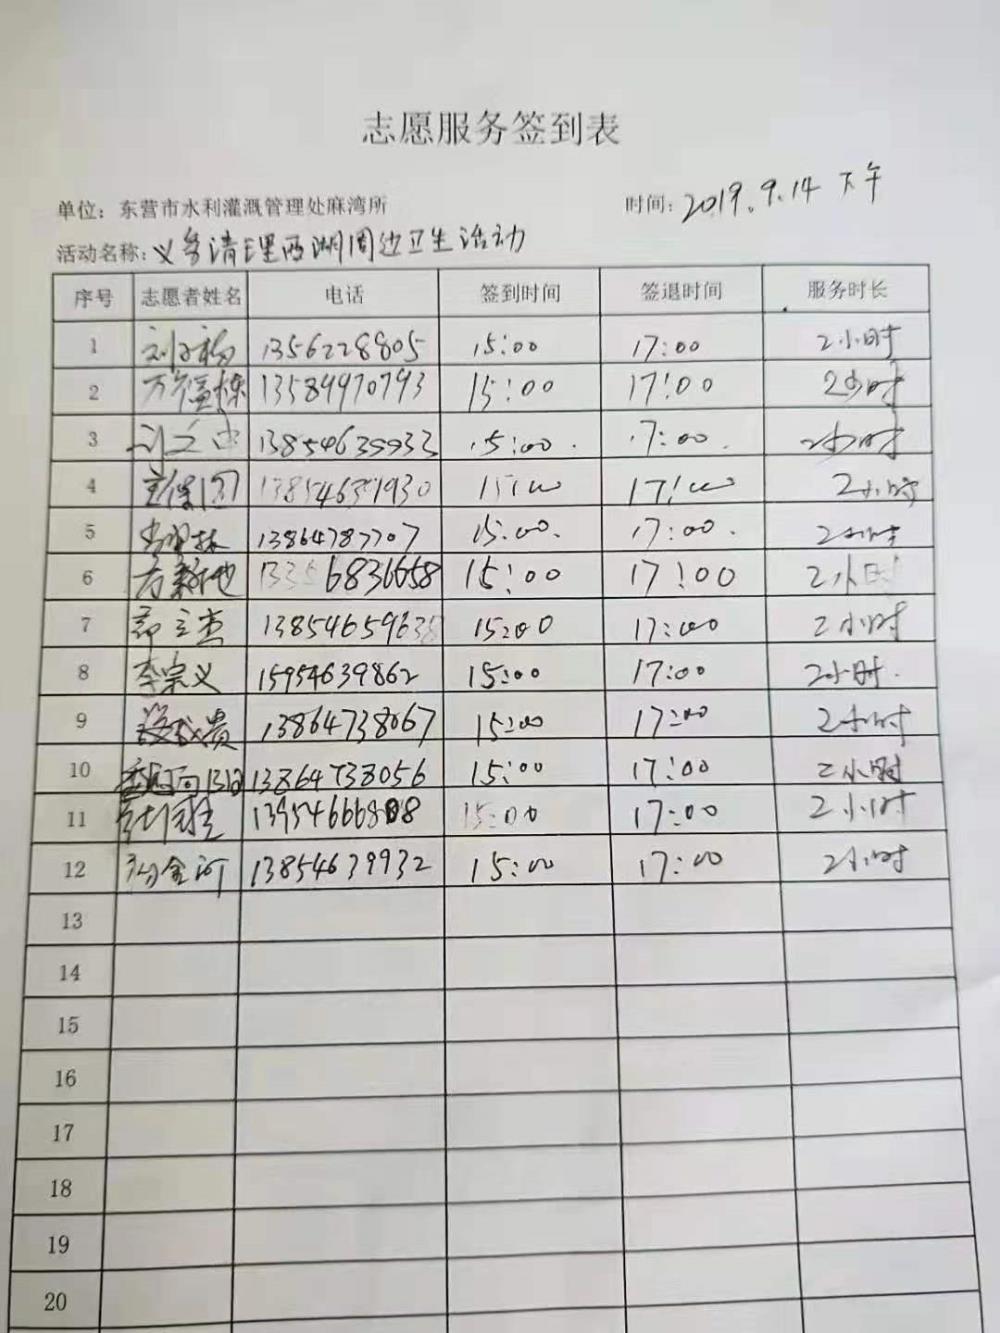 志愿服务签到表
单位：东营市水利灌溉管理处麻湾所 时间：2019.9.14 下午
活动名称：义务清理西湖周边卫生活动
序号 志愿者姓名 电话 签到时间 签退时间 服务时长
1 1356228805 15:00 17:00 2小时
2 13589970793 15:00 17:00 2小时
3 13854635933 15:00. 17:00. 2小时
4 13854631930 15:00 17:00 2小时
5 13864787707 15:00. 17:00. 2小时
6 6836658 15:00 17:00 2小时
7 15:00 17:00 2小时
8 李宗义 15954639862 15:00 17:00 2小时.
9 13864738067 15:00 17:00 2小时
10 13864738056 15:00 17:00 2小时
11 15:00 17:00 2小时
12 13854639932 15:00 17:00 2小时
13
14
15
16
17
18
19
20